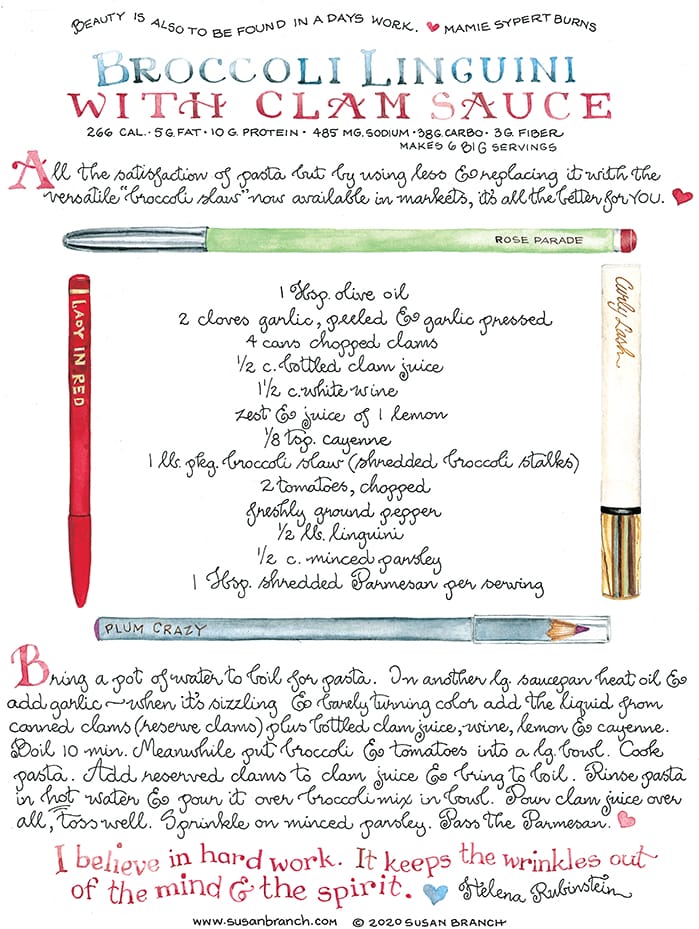 BEAUTY IS ALSO TO BE FOUND IN A DAYS WORK. MAMIE SYPERT BURNS
BROCCOLI LINGUINI
WITH CLAM SAUCE
266 CAL. • 5 G. FAT • 10 G. PROTEIN • 485 MG. SODIUM • 38 G. CARBO • 3 G. FIBER
MAKES 6 BIG SERVINGS
All the satisfaction of pasta but by using less & replacing it with the
versatile "broccoli slaw" now available in markets, it's all the better for YOU.
ROSE PARADE
LADY IN RED
Curly Lash
1 Tbsp. olive oil
2 cloves garlic, peeled & garlic pressed
4 cans chopped clams
1/2 c. bottled clam juice
1 1/2 c. white wine
zest & juice of 1 lemon
1/8 tsp. cayenne
1 lb. pkg. broccoli slaw (shredded broccoli stalks)
2 tomatoes, chopped
freshly ground pepper
1/2 lb. linguini
1/2 c. minced parsley
1 Tbsp. shredded Parmesan per serving
PLUM CRAZY
Bring a pot of water to boil for pasta. In another lg. saucepan heat oil &
add garlic ~ when it's sizzling & barely turning color add the liquid from
canned clams (reserve clams) plus bottled clam juice, wine, lemon & cayenne.
Boil 10 min. Meanwhile put broccoli & tomatoes into a lg. bowl. Cook
pasta. Add reserved clams to clam juice & bring to boil. Rinse pasta
in hot water & pour it over broccoli mix in bowl. Pour clam juice over
all, toss well. Sprinkle on minced parsley. Pass the Parmesan.
I believe in hard work. It keeps the wrinkles out
of the mind & the spirit. Helena Rubinstein
www.susanbranch.com © 2020 SUSAN BRANCH